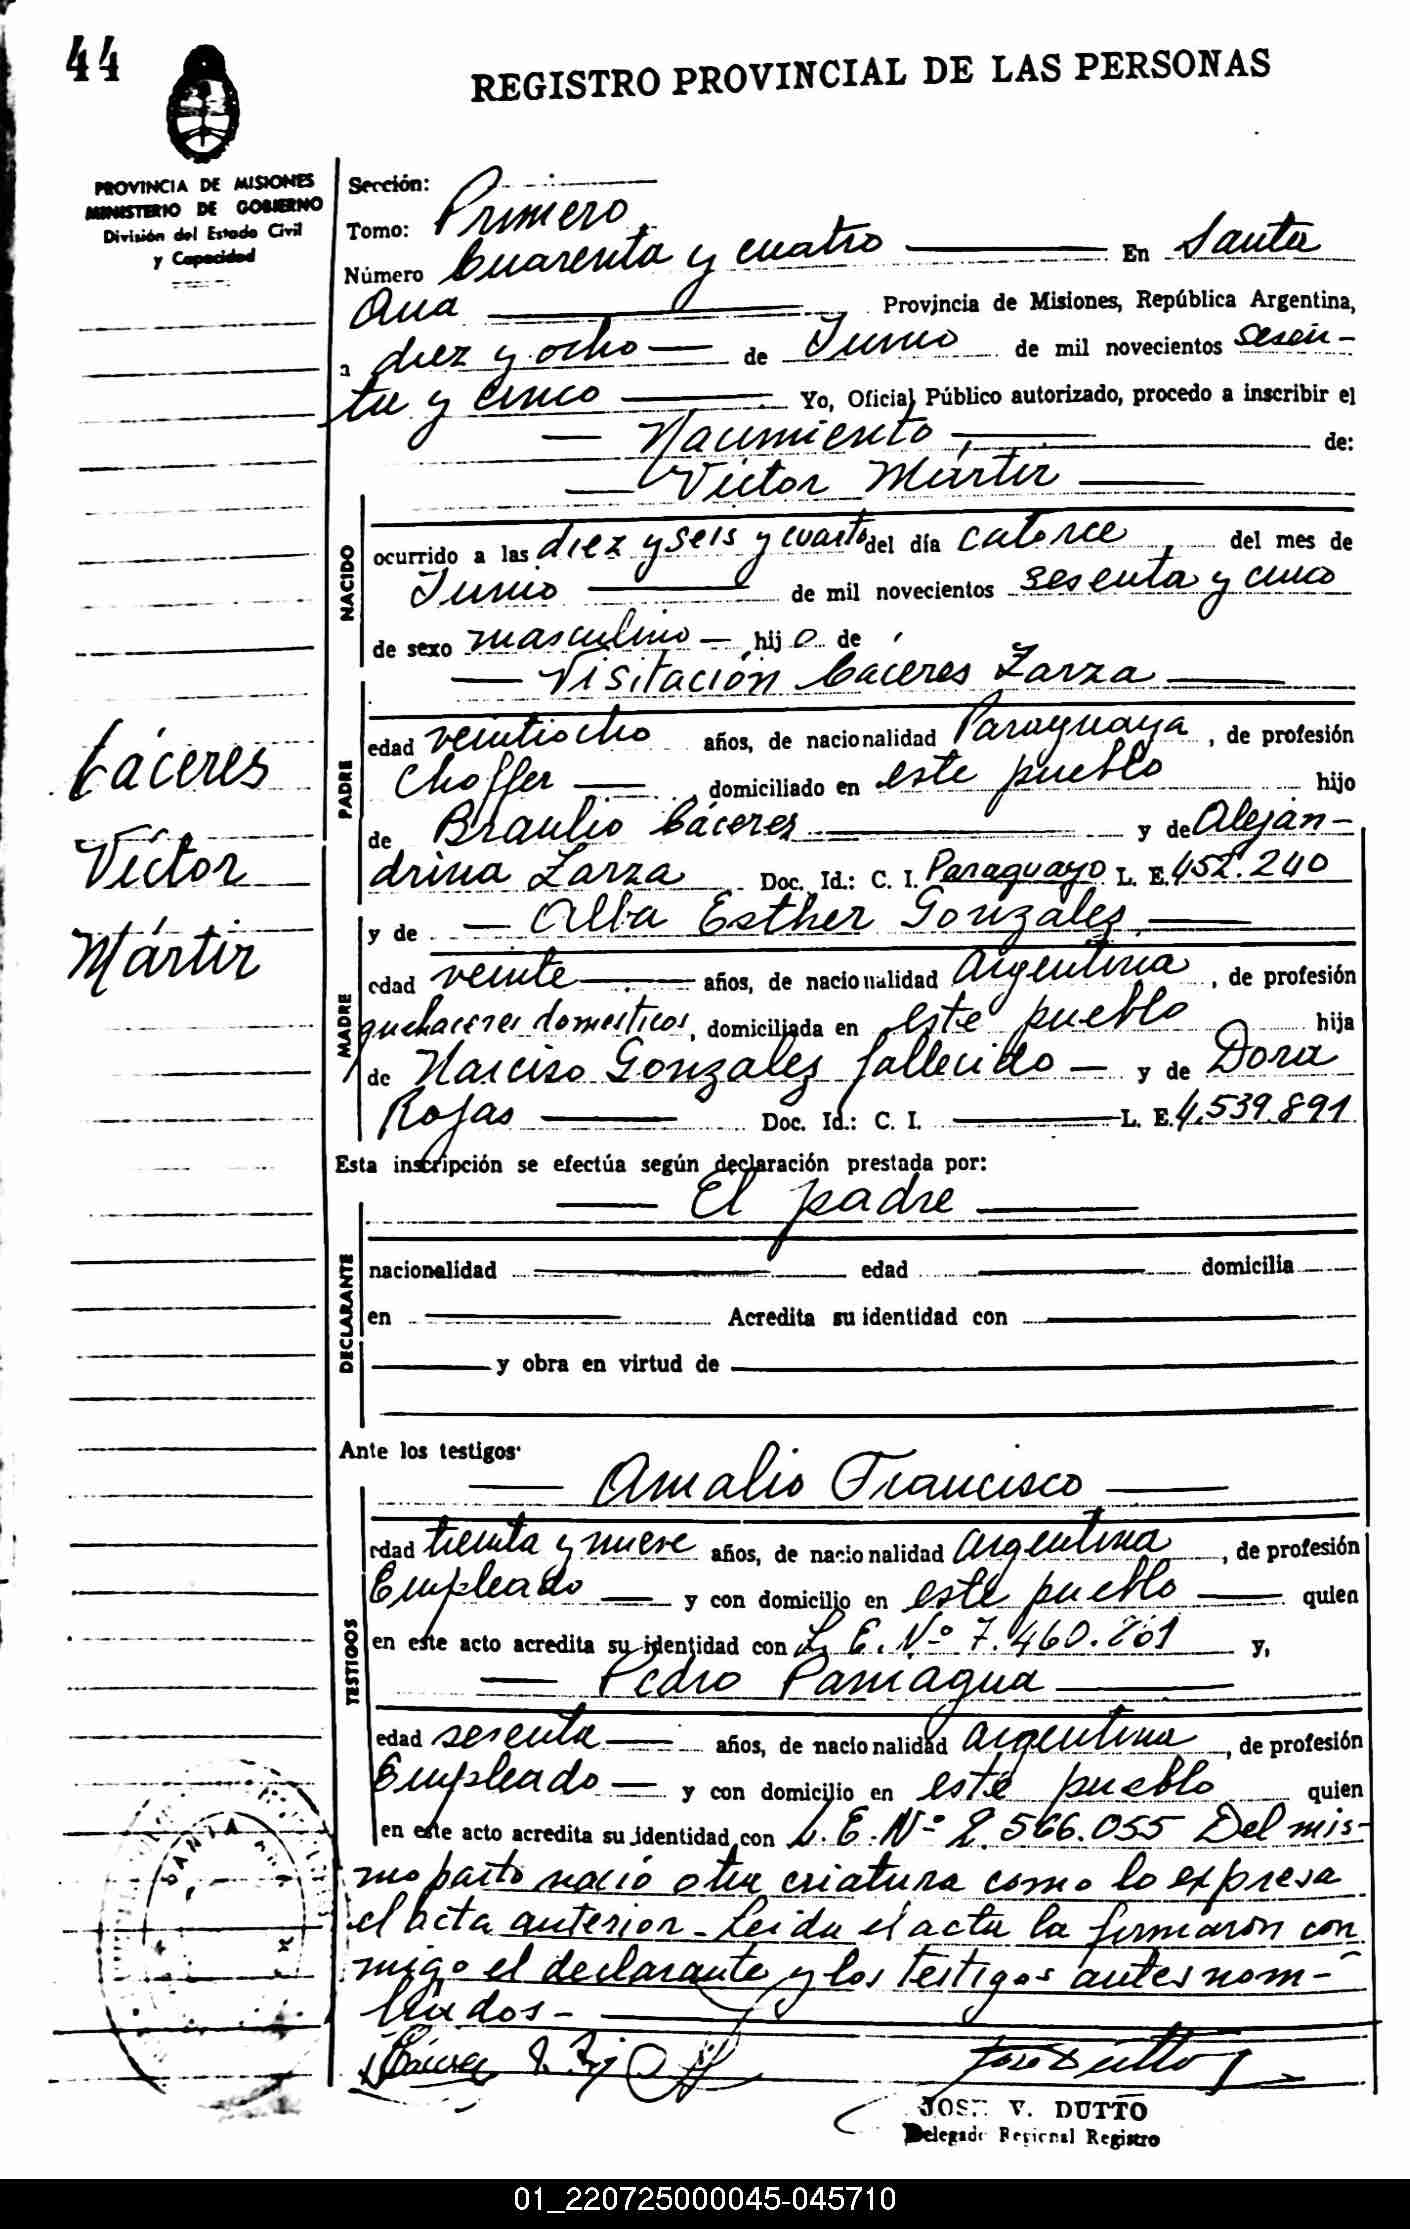 44
REGISTRO PROVINCIAL DE LAS PERSONAS
PROVINCIA DE MISIONES
MINISTERIO DE GOBIERNO
División del Estado Civil
y Capacidad
Sección:
Tomo: Primero
Número Cuarenta y cuatro En Santa
Ana Provincia de Misiones, República Argentina,
a diez y ocho de Junio de mil novecientos sesen-
ta y cinco Yo, Oficial Público autorizado, procedo a inscribir el
Nacimiento de:
Víctor Mártir
NACIDO
ocurrido a las diez y seis y cuarto del día catorce del mes de
Junio de mil novecientos sesenta y cinco
de sexo masculino hijo de
Visitación Cáceres Zarza
PADRE
edad veintiocho años, de nacionalidad Paraguaya, de profesión
Choffer domiciliado en este pueblo hijo
de Braulio Cáceres y de Alejan-
drina Zarza Doc. Id.: C. I. Paraguayo L. E. 452.240
y de Alba Esther Gonzales
Cáceres
Víctor
Mártir
MADRE
edad veinte años, de nacionalidad Argentina, de profesión
quehaceres domesticos, domiciliada en este pueblo hija
de Narciso Gonzales fallecido y de Dora
Rojas Doc. Id.: C. I. L. E. 4.539.891
Esta inscripción se efectúa según declaración prestada por:
El padre
DECLARANTE
nacionalidad edad domicilia
en Acredita su identidad con
y obra en virtud de
Ante los testigos
Amalio Francisco
TESTIGOS
edad treinta y nueve años, de nacionalidad Argentina, de profesión
Empleado y con domicilio en este pueblo quien
en este acto acredita su identidad con L. E. Nº y,
Pedro Paniagua
edad sesenta años, de nacionalidad argentina, de profesión
Empleado y con domicilio en este pueblo quien
en este acto acredita su identidad con L. E. Nº 2.566.055 Del mis-
mo parto nació otra criatura como lo expresa
el acta anterior - Leida el acta la firmaron con
migo el declarante y los testigos antes nom-
brados -
JOSE V. DUTTO
Delegado Regional Registro
01_220725000045-045710